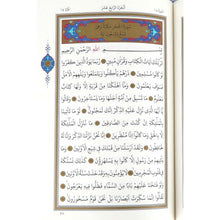 الجزء الرابع عشر
بسم الله الرحمن الرحيم
الر تلك آيات الكتاب وقرآن مبين ربما يود الذين كفروا
لو كانوا مسلمين ذرهم يأكلوا ويتمتعوا ويلههم الأمل فسوف
يعلمون وما أهلكنا من قرية إلا ولها كتاب معلوم ما تسبق
من أمة أجلها وما يستأخرون وقالوا يا أيها الذي نزل عليه
الذكر إنك لمجنون لو ما تأتينا بالملائكة إن كنت من
الصادقين ما ننزل الملائكة إلا بالحق وما كانوا إذا
منظرين إنا نحن نزلنا الذكر وإنا له لحافظون
ولقد أرسلنا من قبلك في شيع الأولين وما
يأتيهم من رسول إلا كانوا به يستهزؤن كذلك نسلكه
في قلوب المجرمين لا يؤمنون به وقد خلت سنة الأولين
ولو فتحنا عليهم بابا من السماء فظلوا فيه يعرجون
لقالوا إنما سكرت أبصارنا بل نحن قوم مسحورون